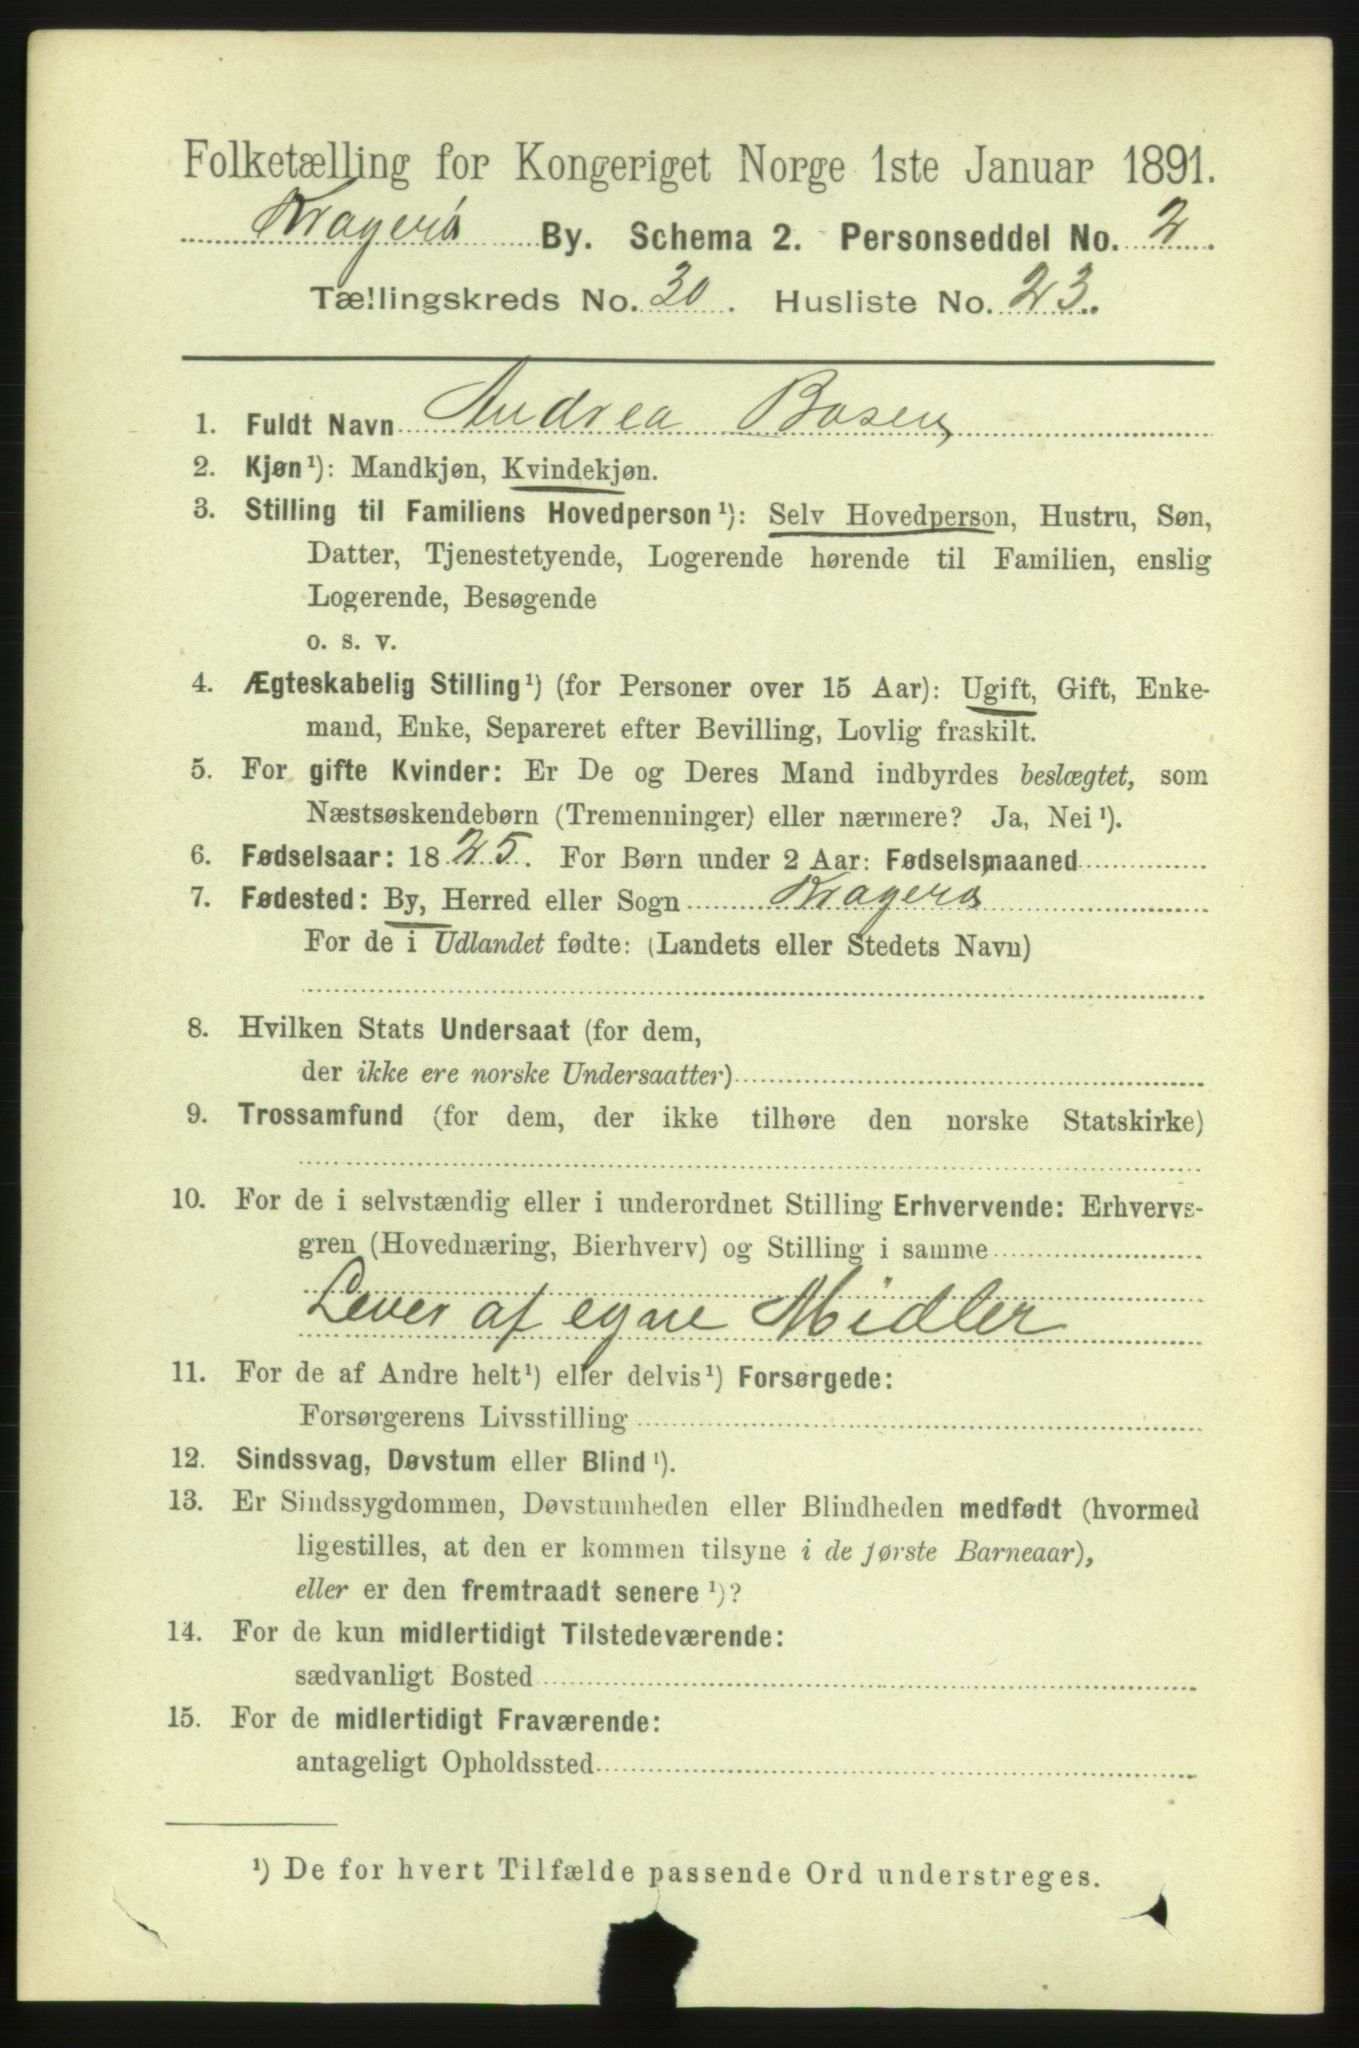 Folketælling for Kongeriget Norge 1ste Januar 1891.
Kragerø By. Schema 2. Personseddel No. 2.
Tællingskreds No. 30. Husliste No. 23.
1. Fuldt Navn Andrea Bosen
2. Kjøn¹): Mandkjøn, Kvindekjøn.
3. Stilling til Familiens Hovedperson¹): Selv Hovedperson, Hustru, Søn,
Datter, Tjenestetyende, Logerende hørende til Familien, enslig
Logerende, Besøgende
o. s. v.
4. Ægteskabelig Stilling¹) (for Personer over 15 Aar): Ugift, Gift, Enke-
mand, Enke, Separeret efter Bevilling, Lovlig fraskilt.
5. For gifte Kvinder: Er De og Deres Mand indbyrdes beslægtet, som
Næstsøskendebørn (Tremenninger) eller nærmere? Ja, Nei¹).
6. Fødselsaar: 1825. For Børn under 2 Aar: Fødselsmaaned
7. Fødested: By, Herred eller Sogn Kragerø
For de i Udlandet fødte: (Landets eller Stedets Navn)
8. Hvilken Stats Undersaat (for dem,
der ikke ere norske Undersaatter)
9. Trossamfund (for dem, der ikke tilhøre den norske Statskirke)
10. For de i selvstændig eller i underordnet Stilling Erhvervende: Erhvervs-
gren (Hovednæring, Bierhverv) og Stilling i samme
Lever af egne Midler
11. For de af Andre helt¹) eller delvis¹) Forsørgede:
Forsørgerens Livsstilling
12. Sindssvag, Døvstum eller Blind¹).
13. Er Sindssygdommen, Døvstumheden eller Blindheden medfødt (hvormed
ligestilles, at den er kommen tilsyne i de første Barneaar),
eller er den fremtraadt senere¹)?
14. For de kun midlertidigt Tilstedeværende:
sædvanligt Bosted
15. For de midlertidigt Fraværende:
antageligt Opholdssted
¹) De for hvert Tilfælde passende Ord understreges.